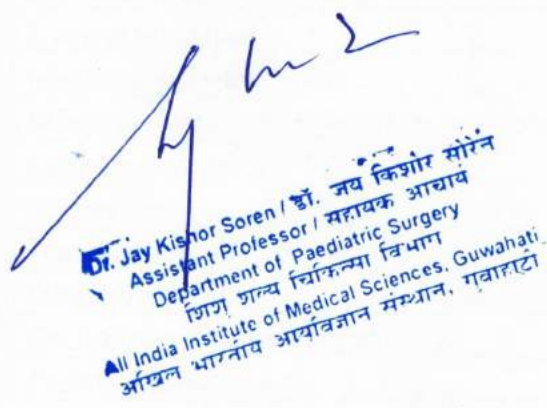 Dr. Jay Kishor Soren / डॉ. जय किशोर सोरेन
Assistant Professor / सहायक आचार्य
Department of Paediatric Surgery
शिशु शल्य चिकित्सा विभाग
All India Institute of Medical Sciences, Guwahati
अखिल भारतीय आयुर्विज्ञान संस्थान, गुवाहाटी